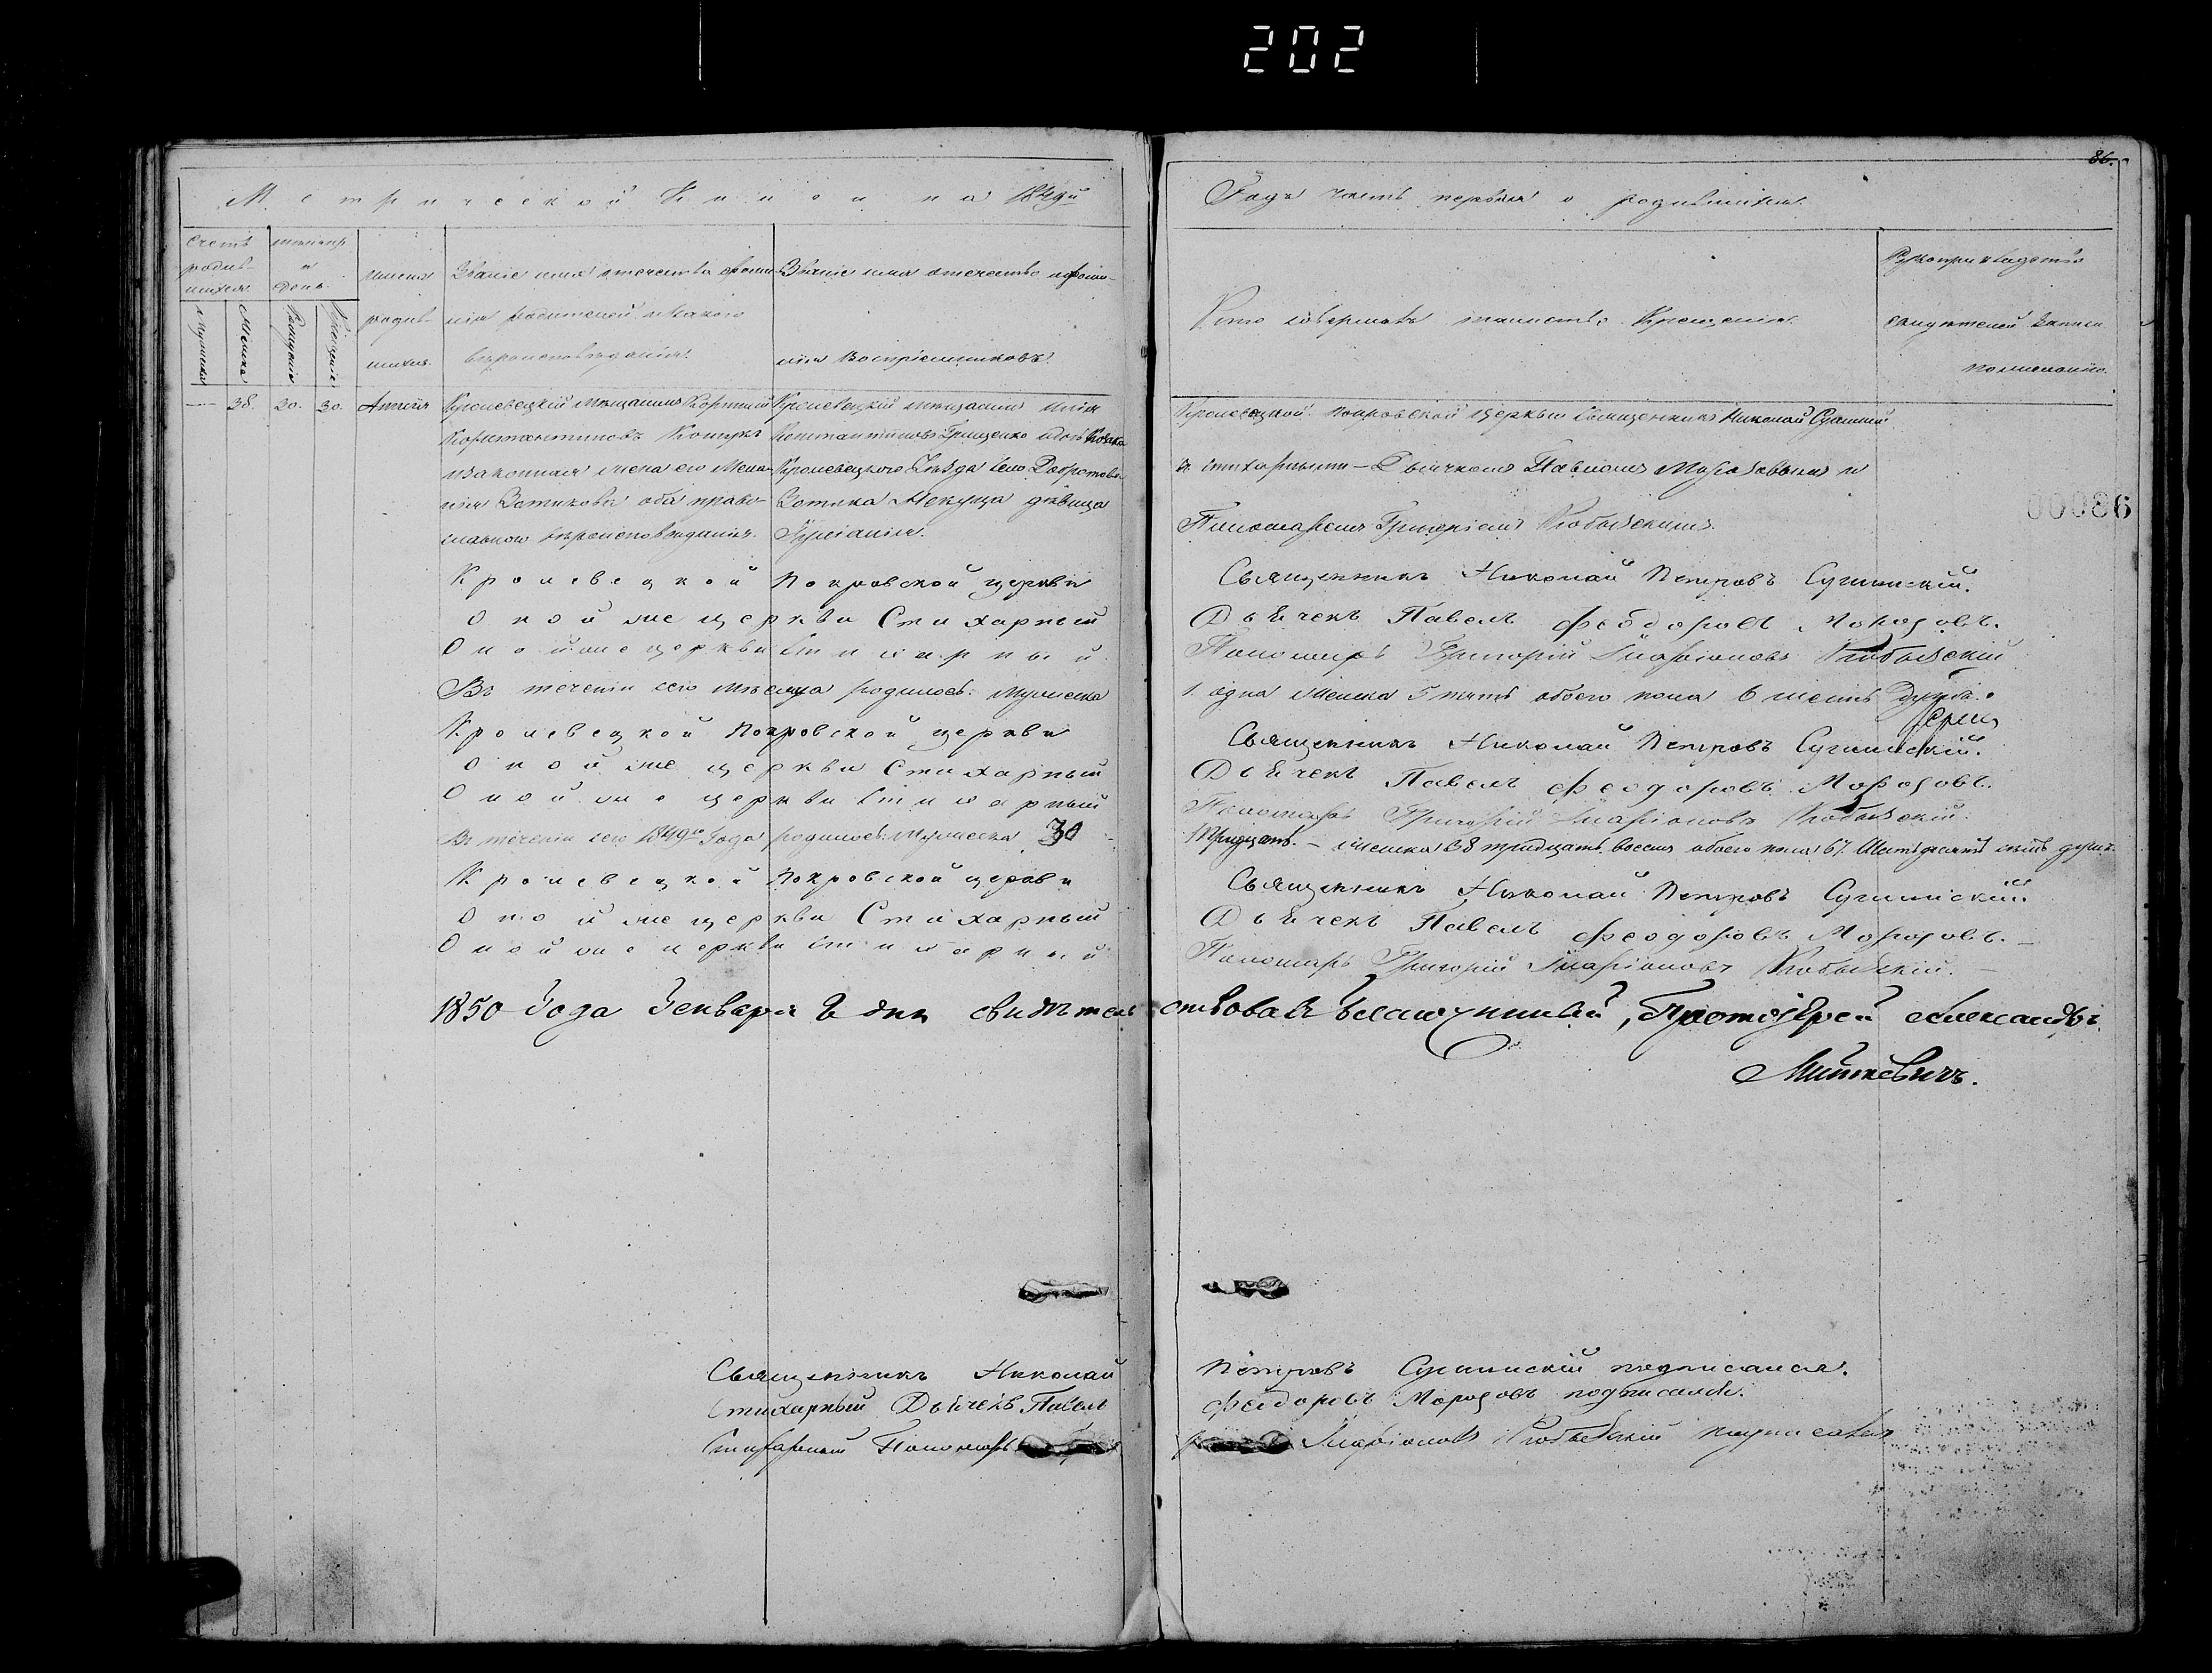 202
86.
Метрической Книги на 1849й
Года часть первая о родившихся.
Счетъ родив-шихся
Мужеска
Женска
месяцъ и день
Рожденія
Крещенія
имена родив-шихся.
Званіе имя отечество фами-лія родителей и какого вероисповеданія.
Званіе имя отечество и фами-лія Воспріемниковъ.
Кто совершалъ таинство Крещенія.
Рукоприкладство свидетелей записи по желанію.
38. 30. 30.
Кролевецкій мещанинъ
Константиновъ
и законная жена его Мела-
нія Зотикова оба право-
славного вероисповеданія.
Кролевецкій мещанинъ Илія
Константиновъ Грищенко
Кролевецкого Уезда села
девица
Кролевецкой Покровской церкви Священникъ Николай
съ стихарными Дьячкомъ Павломъ Морозовымъ и
Пономаремъ Григоріемъ
00086
Кролевецкой Покровской церкви Священникъ Николай Петровъ Сушинскій.
Оной же церкви Стихарный Дьячекъ Павелъ Феодоровъ Морозовъ.
Оной же церкви Стихарный Пономарь Григорій Иларіоновъ
Въ теченіи сего месяца родилось: Мужеска 1. одна Женска 5 пять обоего пола 6 шесть душъ.
Кролевецкой Покровской церкви Священникъ Николай Петровъ Сушинскій.
Оной же церкви Стихарный Дьячекъ Павелъ Феодоровъ Морозовъ.
Оной же церкви Стихарный Пономарь Григорій Иларіоновъ
Въ теченіи сего 1849го Года родилось: Мужеска 30 тридцать. - женска 38 тридцать восемь обоего пола душъ
Кролевецкой Покровской церкви Священникъ Николай Петровъ Сушинскій.
Оной же церкви Стихарный Дьячекъ Павелъ Феодоровъ Морозовъ.
Оной же церкви Стихарный Пономарь Григорій Иларіоновъ
1850 Года Генваря дня свидетельствовалъ Благочинный, Протоіерей Александръ
Миткевичъ.
Священникъ Николай Петровъ Сушинскій подписался.
Стихарный Дьячекъ Павелъ Феодоровъ Морозовъ подписался.
Стихарный Пономарь Иларіоновъ подписался